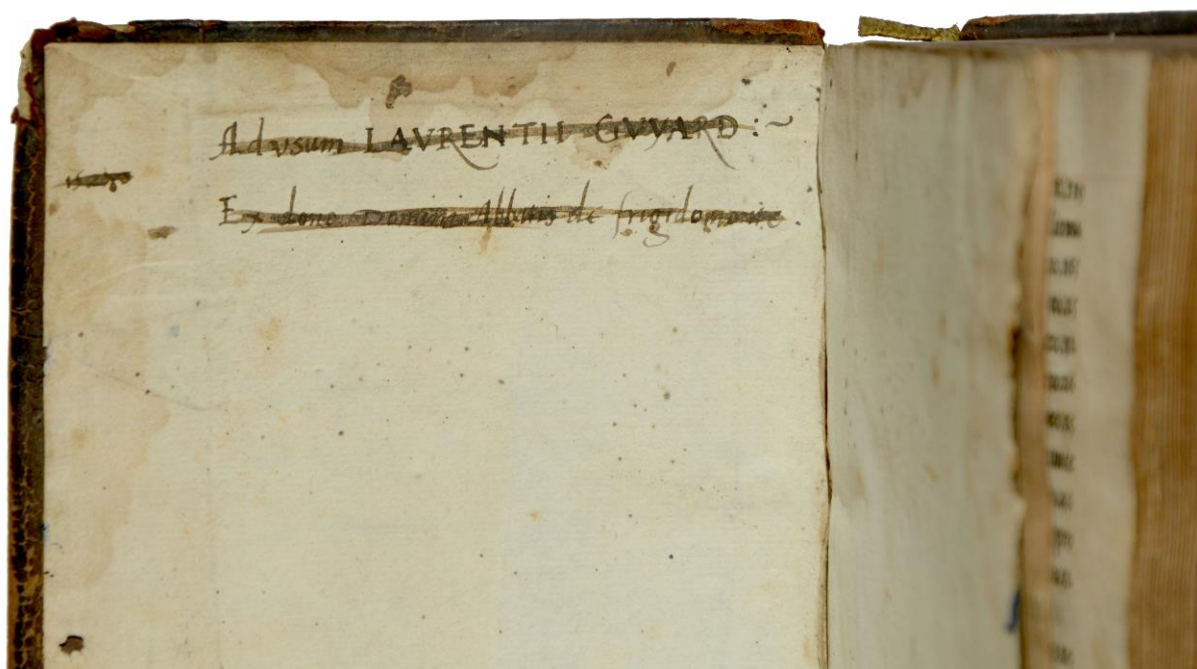 Ad vsum LAVRENTII GVYARD :~
Ex dono Domini Abbatis de frigidomonte .